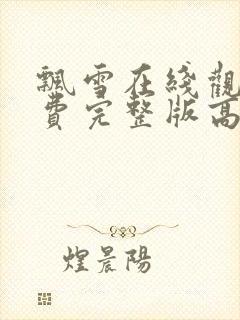 飄雪在綫觀
費完整版高
煌晨陽